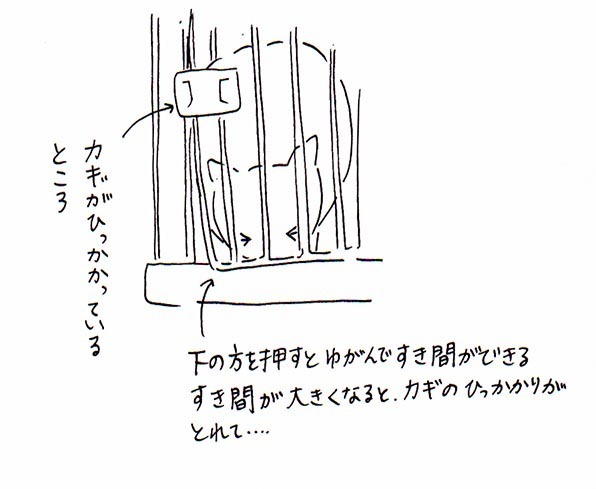 カギがひっかかっている
ところ
下の方を押すとゆがんですき間ができる
すき間が大きくなると、カギのひっかかりが
とれて‥‥